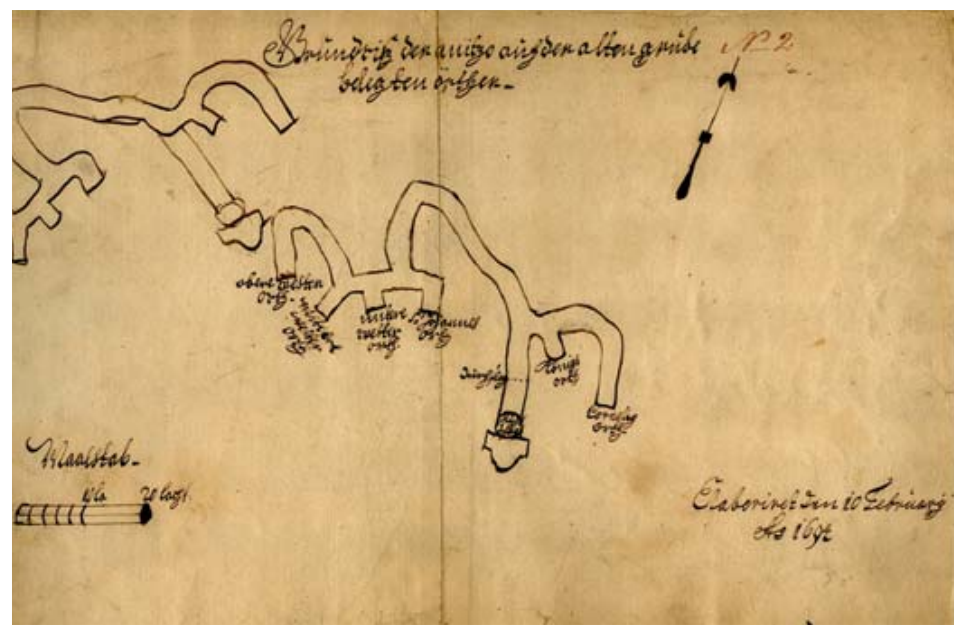 Grundriß der anitzo auf der alten grube
N 2
belegten örther
obere wester
orth
mittlere
wester
orth
untere
wester
orth
Johannes
orth
Durchschlag
Königs
orth
Cornelÿ
orth
Maalstab
10 la
20 lacht
Elaboriret den 10 Februarÿ
Ao 1692